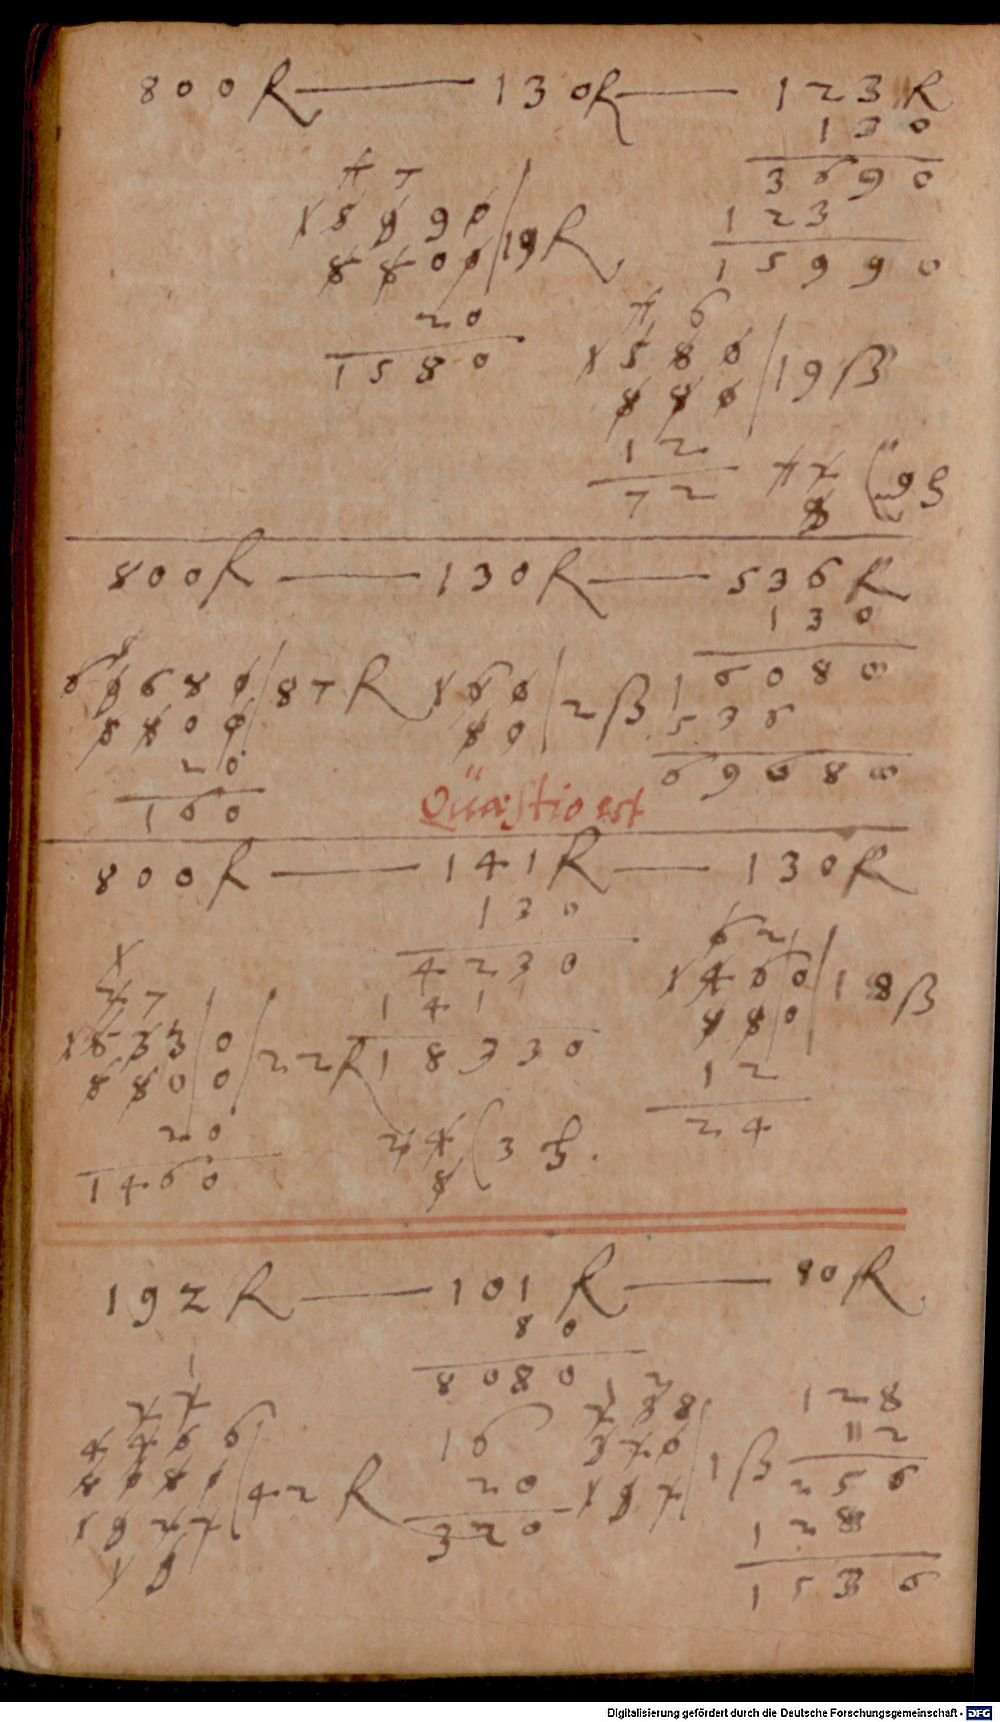 800 R — 130 R — 123 R
130
3690
123
15990
4 7
15990 | 19 R
8800
20
1580
4 6
1580 | 19 ß
880
12
72
77 ( 9 ₰
8
800 R — 130 R — 536 R
130
16080
536
69680
69680 | 87 R
8800
20
160
160 | 2 ß
80
Quæstio est
800 R — 141 R — 130 R
130
4230
141
18330
18330 | 22 R
8800
20
1460
6 2
1460 | 18 ß
880
12
24
24 ( 3 ₰.
8
192 R — 101 R — 80 R
80
8080
8080 | 42 R
1922
19
16
20
320
1 2
2 88
320 | 1 ß
192
128
12
256
128
1536
Digitalisierung gefördert durch die Deutsche Forschungsgemeinschaft - DFG